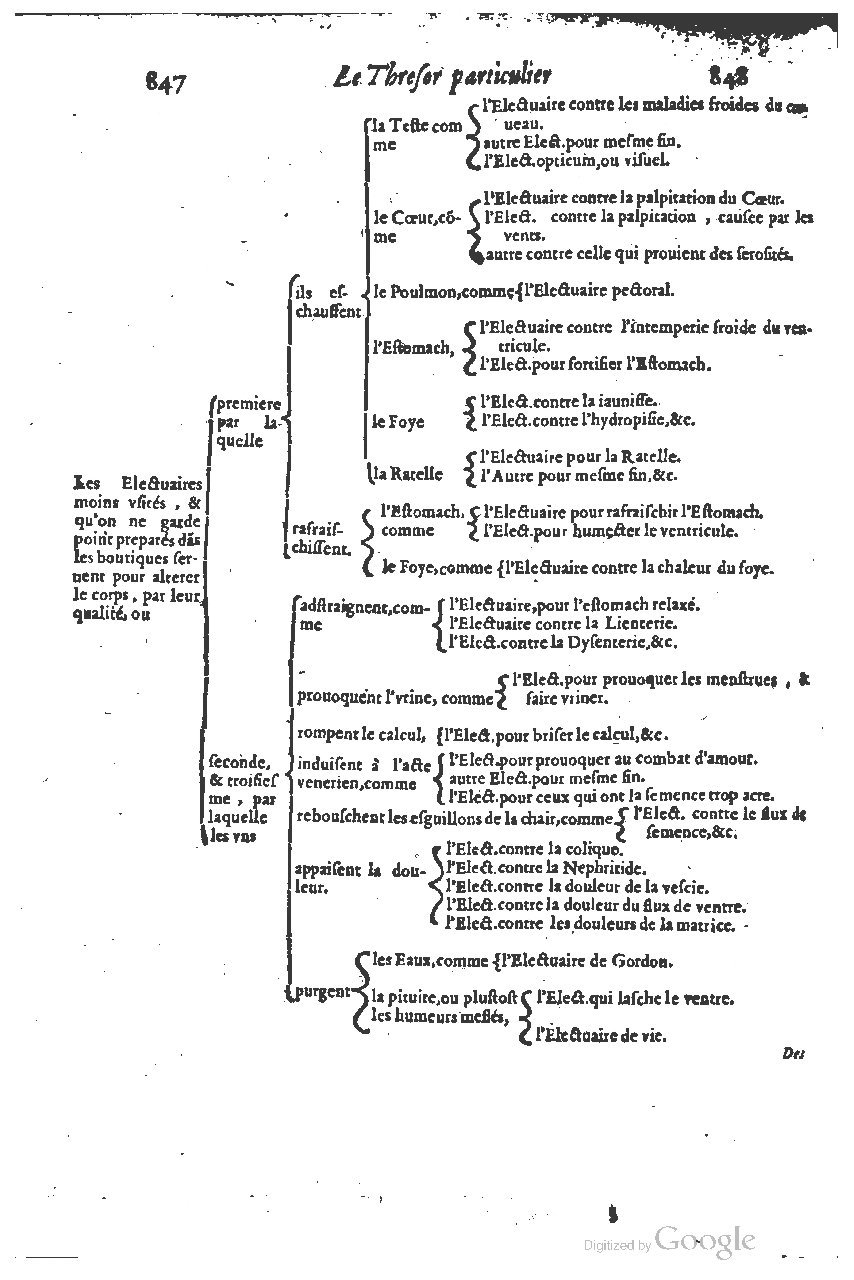 847 Le Threſor particulier 848
Les Electuaires
moins vſités, &
qu'on ne garde
point preparés dãs
les boutiques ſer-
uent pour alterer
le corps, par leur
qualité, ou
premiere
par la-
quelle
ils eſ-
chauffent
la Teſte com
me
l'Electuaire contre les maladies froides du cer-
ueau.
autre Elect.pour meſme fin.
l'Elect.opticum,ou viſuel.
le Cœur,cõ-
me
l'Electuaire contre la palpitation du Cœur.
l'Elect. contre la palpitation, cauſee par les
vents.
autre contre celle qui prouient des ſeroſités.
le Poulmon,comme{l'Electuaire pectoral.
l'Eſtomach,
l'Electuaire contre l'intemperie froide du ven-
tricule.
l'Elect.pour fortifier l'Eſtomach.
le Foye
l'Elect.contre la iauniſſe.
l'Elect.contre l'hydropiſie,&c.
la Ratelle
l'Electuaire pour la Ratelle.
l'Autre pour meſme fin,&c.
rafraiſ-
chiſſent.
l'Eſtomach.
comme
l'Electuaire pour rafraiſchir l'Eſtomach.
l'Elect.pour humecter le ventricule.
le Foye,comme {l'Electuaire contre la chaleur du foye.
ſeconde,
& troiſieſ
me, par
laquelle
les vns
adſtraignent,com-
me
l'Electuaire,pour l'eſtomach relaxé.
l'Electuaire contre la Lienterie.
l'Elect.contre la Dyſenterie,&c.
prouoquent l'vrine, comme
l'Elect.pour prouoquer les menſtrues, &
faire vriner.
rompent le calcul, {l'Elect.pour briſer le calcul,&c.
induiſent à l'acte
venerien,comme
l'Elect.pour prouoquer au combat d'amour.
autre Elect.pour meſme fin.
l'Elect.pour ceux qui ont la ſemence trop acre.
rebouſchent les eſguillons de la chair,comme
l'Elect. contre le flux de
ſemence,&c.
appaiſent la dou-
leur.
l'Elect.contre la colique.
l'Elect.contre la Nephritide.
l'Elect.contre la douleur de la veſcie.
l'Elect.contre la douleur du flux de ventre.
l'Elect.contre les douleurs de la matrice.
purgent
les Eaux,comme {l'Electuaire de Gordon.
la pituite,ou pluſtoſt
les humeurs meſlés,
l'Elect.qui laſche le ventre.
l'Electuaire de vie.
Des
Digitized by Google